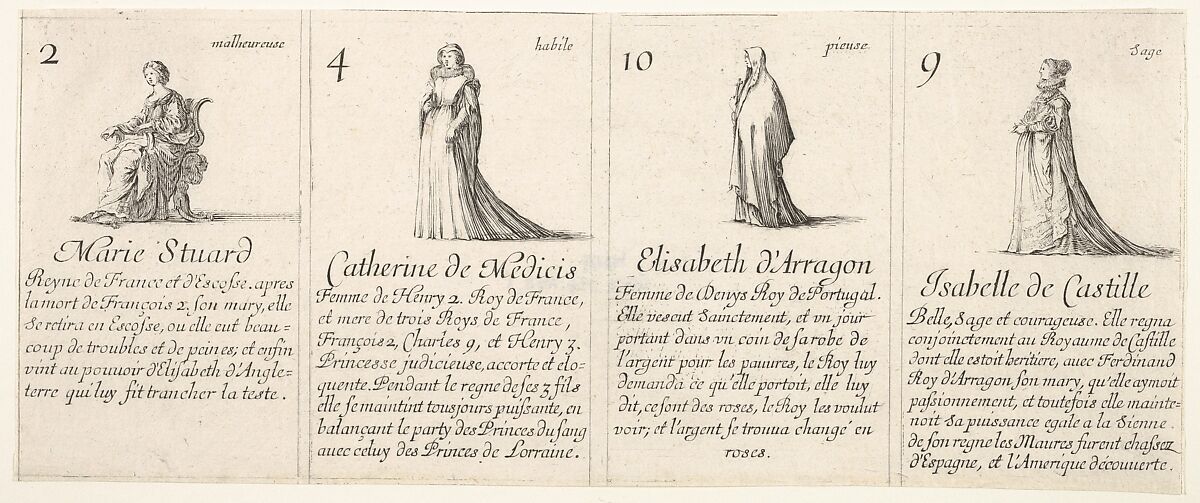 2
malheureuse
Marie Stuard
Reyne de France et d'Escosse. apres
la mort de François 2. son mary, elle
se retira en Escosse, ou elle eut beau=
coup de troubles et de peines; et enfin
vint au pouuoir d'Elisabeth d'Angle=
terre qui luy fit trancher la teste.
4
habile
Catherine de Medicis
Femme de Henry 2. Roy de France,
et mere de trois Roys de France,
François 2, Charles 9, et Henry 3.
Princesse judicieuse, accorte et elo=
quente. Pendant le regne de ses 3 fils
elle se maintint tousjours puissante, en
balançant le party des Princes du sang
auec celuy des Princes de Lorraine.
10
pieuse
Elisabeth d'Arragon
Femme de Denys Roy de Portugal.
Elle vescut sainctement, et vn jour
portant dans vn coin de sa robe de
l'argent pour les pauures, le Roy luy
demanda ce qu'elle portoit, elle luy
dit, ce sont des roses, le Roy les voulut
voir; et l'argent se trouua changé en
roses.
9
sage
Isabelle de Castille
Belle, sage et courageuse. Elle regna
conjoinctement au Royaume de Castille
dont elle estoit heritiere, auec Ferdinand
Roy d'Arragon son mary, qu'elle aymoit
passionnement, et toutefois elle mainte=
noit sa puissance egale a la sienne.
de son regne les Maures furent chassez
d'Espagne, et l'Amerique découuerte.